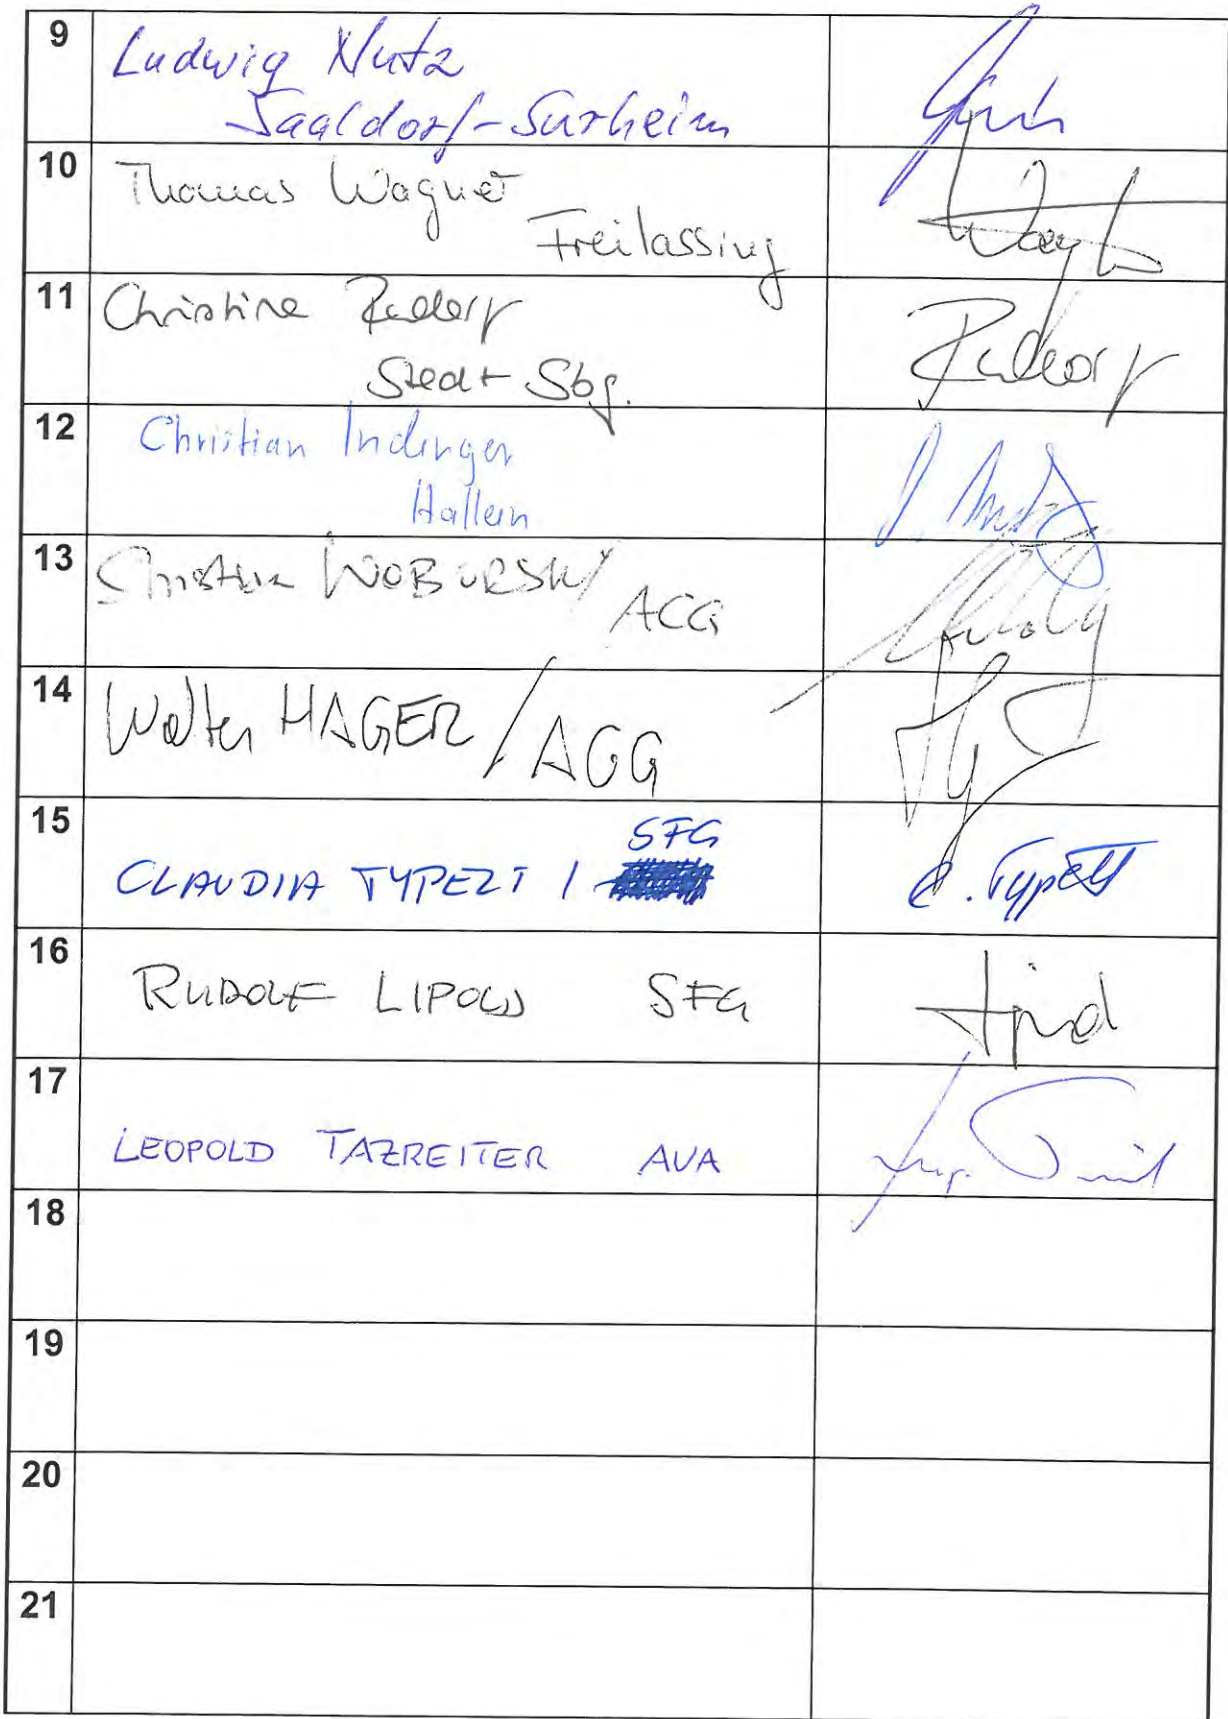 9
Ludwig Nutz
Saaldorf-Surheim
10
Thomas Wagner
Freilassing
11
Christine Rudorf
Stadt Sbg.
Rudorf
12
Christian Indinger
Hallein
13
WOBORSKY ACG
14
Walter HAGER / AGG
15
SFG
CLAUDIA TYPELT /
C. Typelt
16
RUDOLF LIPOLD SFG
17
LEOPOLD TAZREITER AVA
18
19
20
21